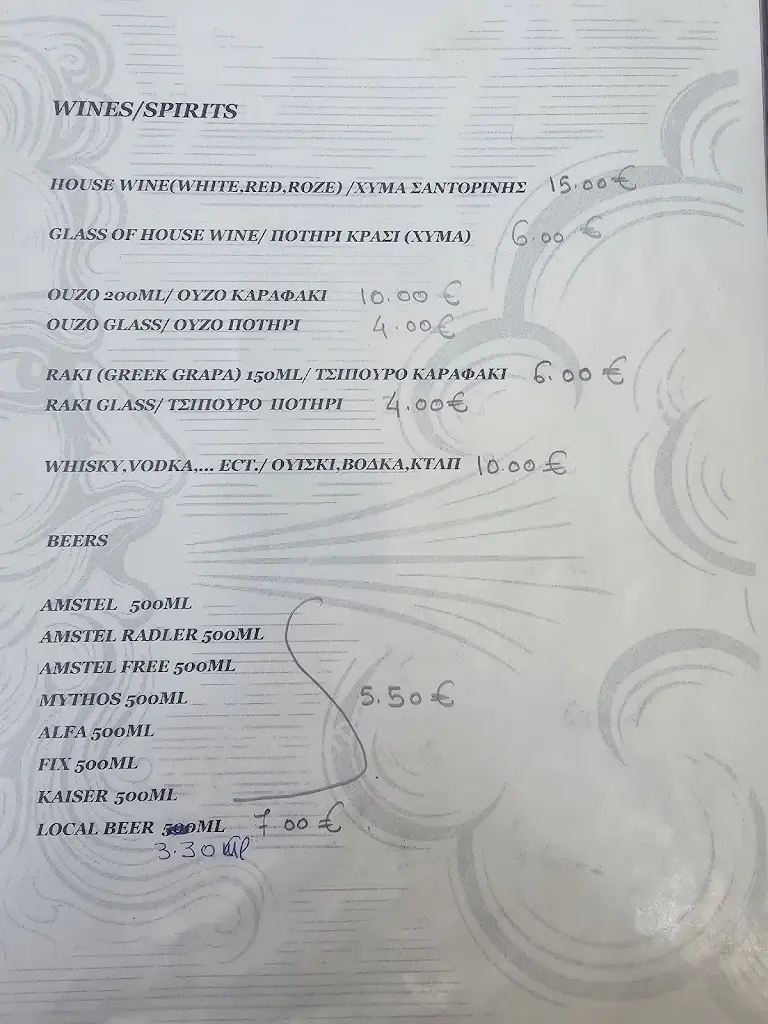 WINES/SPIRITS
HOUSE WINE(WHITE,RED,ROZE) /ΧΥΜΑ ΣΑΝΤΟΡΙΝΗΣ 15.00€
GLASS OF HOUSE WINE/ ΠΟΤΗΡΙ ΚΡΑΣΙ (ΧΥΜΑ) 6.00 €
OUZO 200ML/ ΟΥΖΟ ΚΑΡΑΦΑΚΙ 10.00 €
OUZO GLASS/ ΟΥΖΟ ΠΟΤΗΡΙ 4.00€
RAKI (GREEK GRAPA) 150ML/ ΤΣΙΠΟΥΡΟ ΚΑΡΑΦΑΚΙ 6.00 €
RAKI GLASS/ ΤΣΙΠΟΥΡΟ ΠΟΤΗΡΙ 4.00€
WHISKY,VODKA,... ECT./ ΟΥΙΣΚΙ,ΒΟΔΚΑ,ΚΤΛΠ 10.00€
BEERS
AMSTEL 500ML
AMSTEL RADLER 500ML
AMSTEL FREE 500ML
MYTHOS 500ML 5.50€
ALFA 500ML
FIX 500ML
KAISER 500ML
LOCAL BEER 500ML 7.00 €
3.30 ml